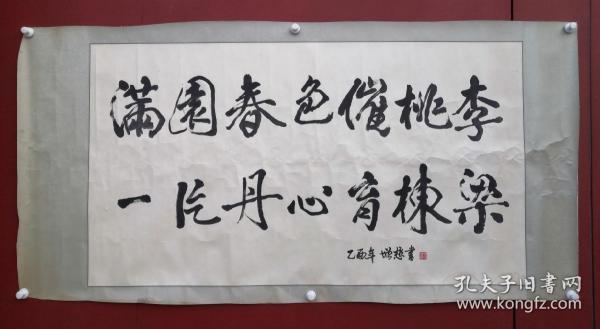 满园春色催桃李
一片丹心育栋梁
乙酉年 增梃书
孔夫子旧书网
www.kongfz.com